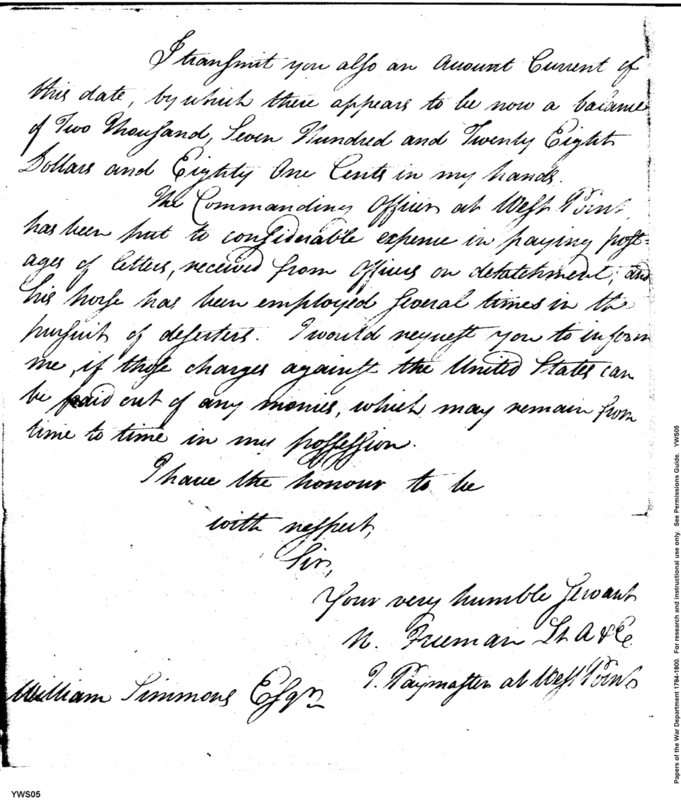 I transmit you also an Account Current of
this date, by which there appears to be now a balance
of Two Thousand, Seven Hundred and Twenty Eight
Dollars and Eighty One Cents in my hands.
The Commanding Officer at West Point
has been put to considerable expense in paying post-
ages of letters, received from Officers on detatchment; and
his horse has been employed several times in the
pursuit of deserters. I would request you to inform
me, if those charges against the United States can
be paid out of any monies, which may remain from
time to time in my possession.
I have the honour to be
with respect,
Sir,
Your very humble Servant
N. Freeman Lt A & E.
P. Paymaster at West Point
William Simmons Esqr
YWS05
Papers of the War Department 1784-1800. For research and instructional use only. See Permissions Guide. YWS05